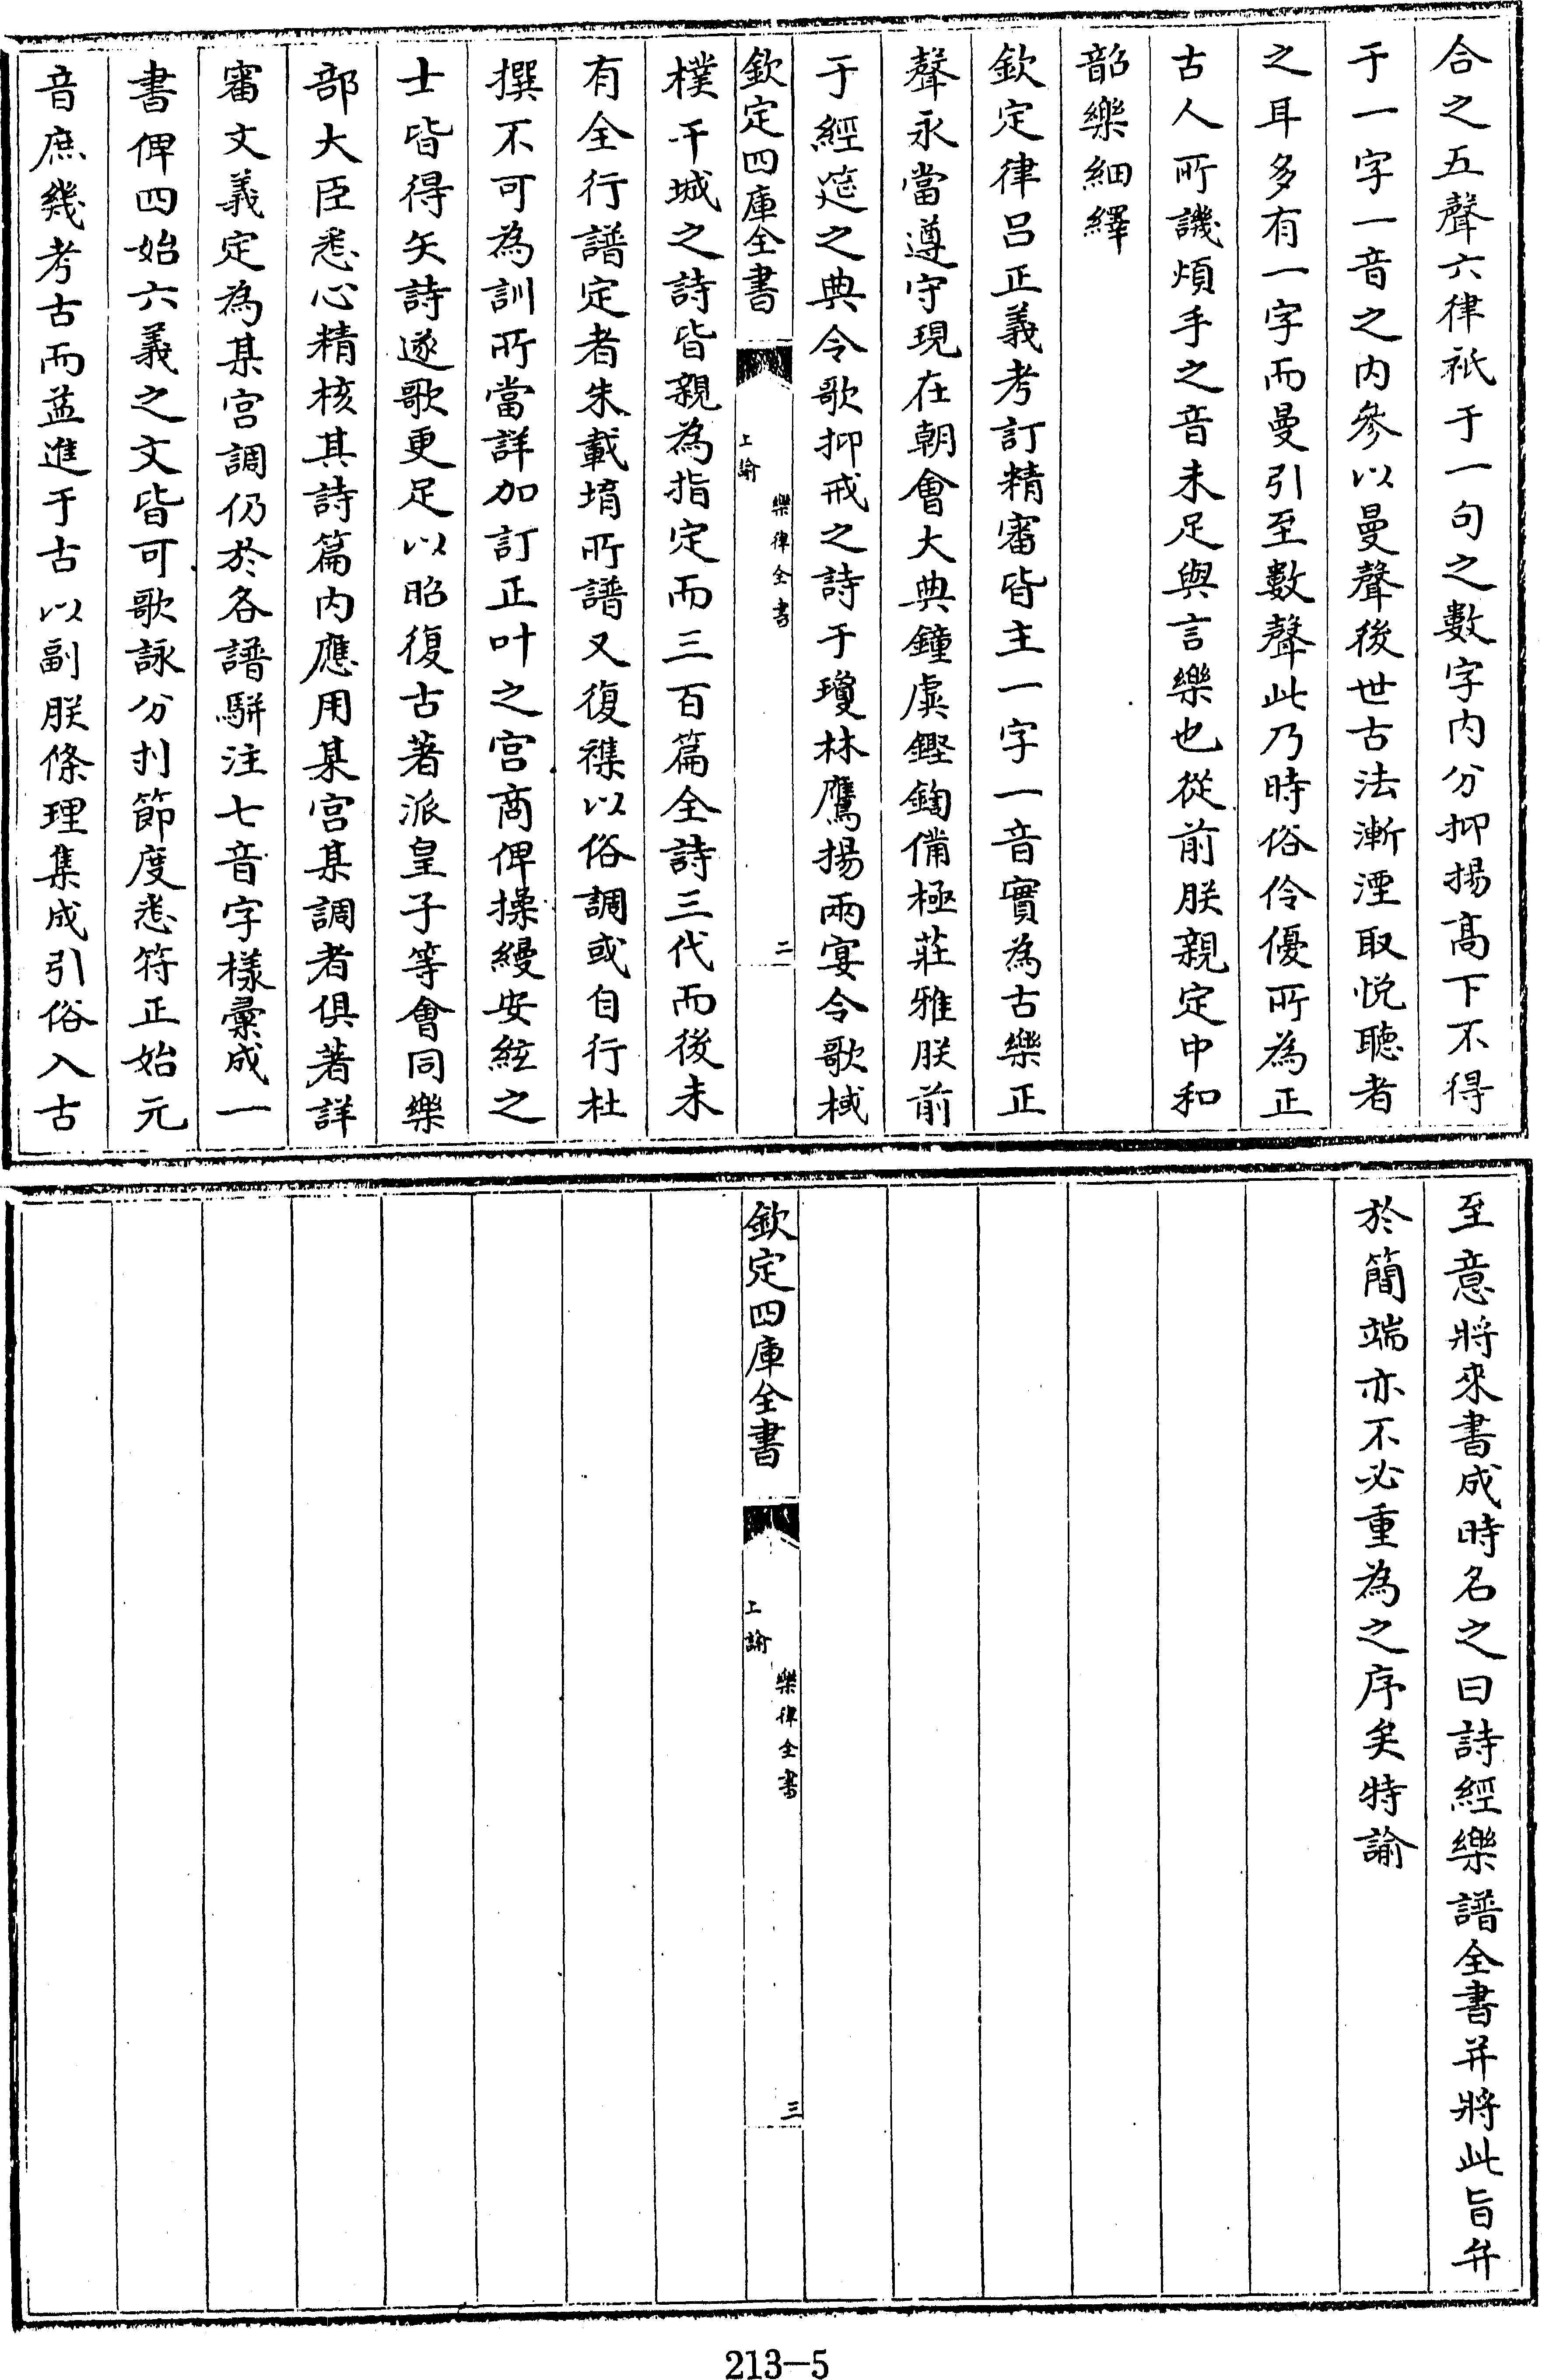 合之五聲六律祇于一句之數字内分抑揚髙下不得
于一字一音之内參以曼聲後世古法漸湮取悦聽者
之耳多有一字而曼引至數聲此乃時俗伶優所為正
古人所譏煩手之音未足與言樂也從前朕親定中和
韶樂細繹
欽定律吕正義考訂精審皆主一字一音實為古樂正
聲永當遵守現在朝會大典鐘虡鏗鍧備極莊雅朕前
于經筵之典令歌抑戒之詩于瓊林鷹揚兩宴令歌棫
欽定四庫全書
上諭
樂律全書
二
樸干城之詩皆親為指定而三百篇全詩三代而後未
有全行譜定者朱載堉所譜又復襍以俗調或自行杜
撰不可為訓所當詳加訂正叶之宫商俾操縵安絃之
士皆得矢詩遂歌更足以昭復古著派皇子等會同樂
部大臣悉心精核其詩篇内應用某宫某調者俱著詳
審文義定為某宫調仍於各譜駢注七音字樣彙成一
書俾四始六義之文皆可歌詠分刌節度悉符正始元
音庶幾考古而益進于古以副朕條理集成引俗入古
至意將來書成時名之曰詩經樂譜全書并將此旨弁
於簡端亦不必重為之序矣特諭
欽定四庫全書
上諭
樂律全書
三
213-5